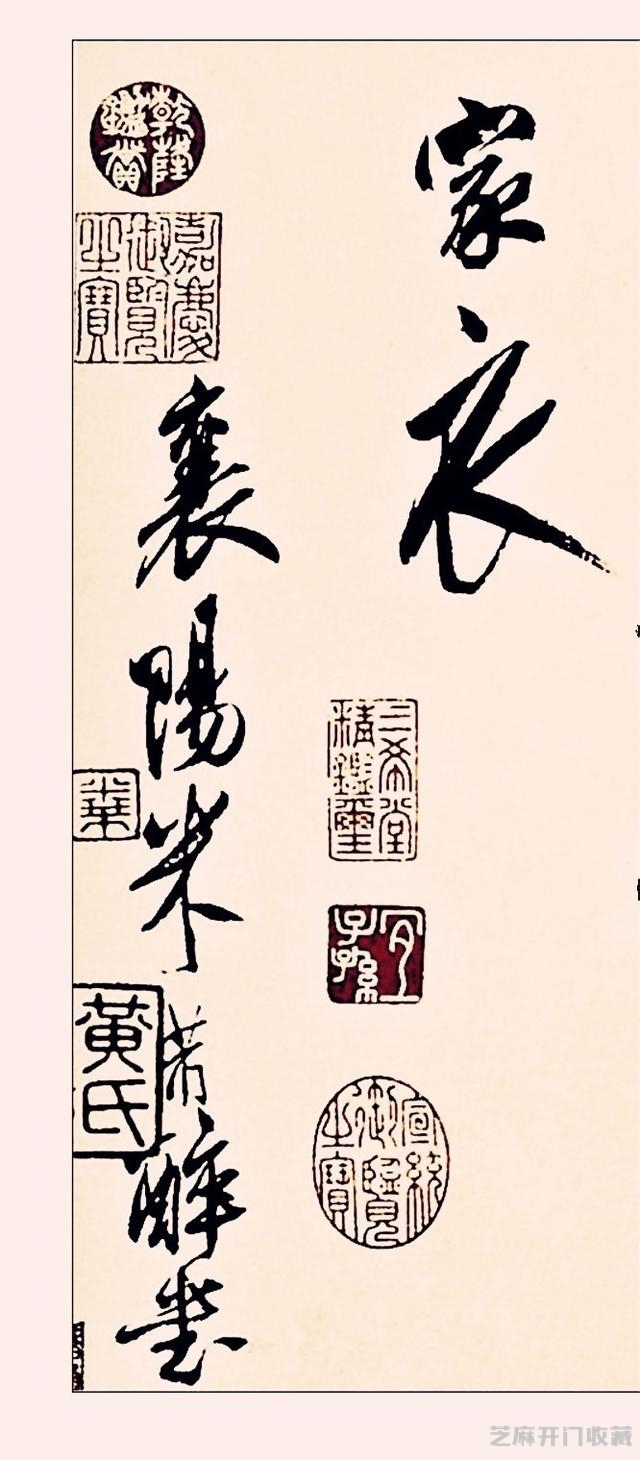 家衣
三希堂精鑑璽
宜子孫
宣統御覽之寶
乾隆鑑賞
嘉慶御覽之寶
襄陽米芾醉書
黃氏
芝麻开门收藏